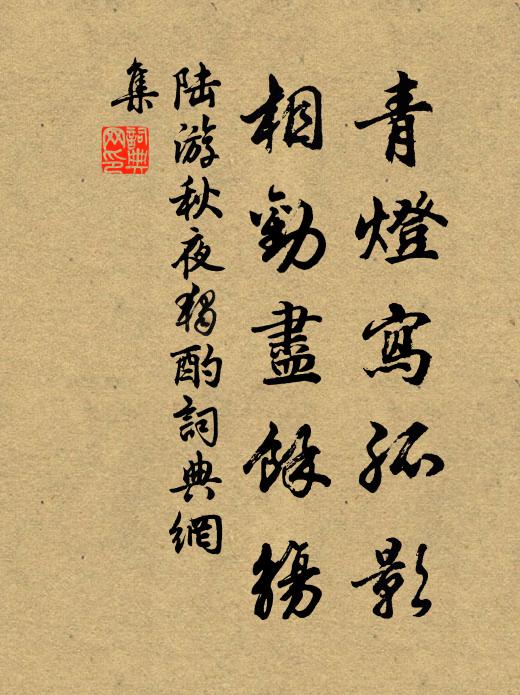 青燈寫孤影
相勸盡餘觴
陸游秋夜獨酌詞典網
集
詞典網印